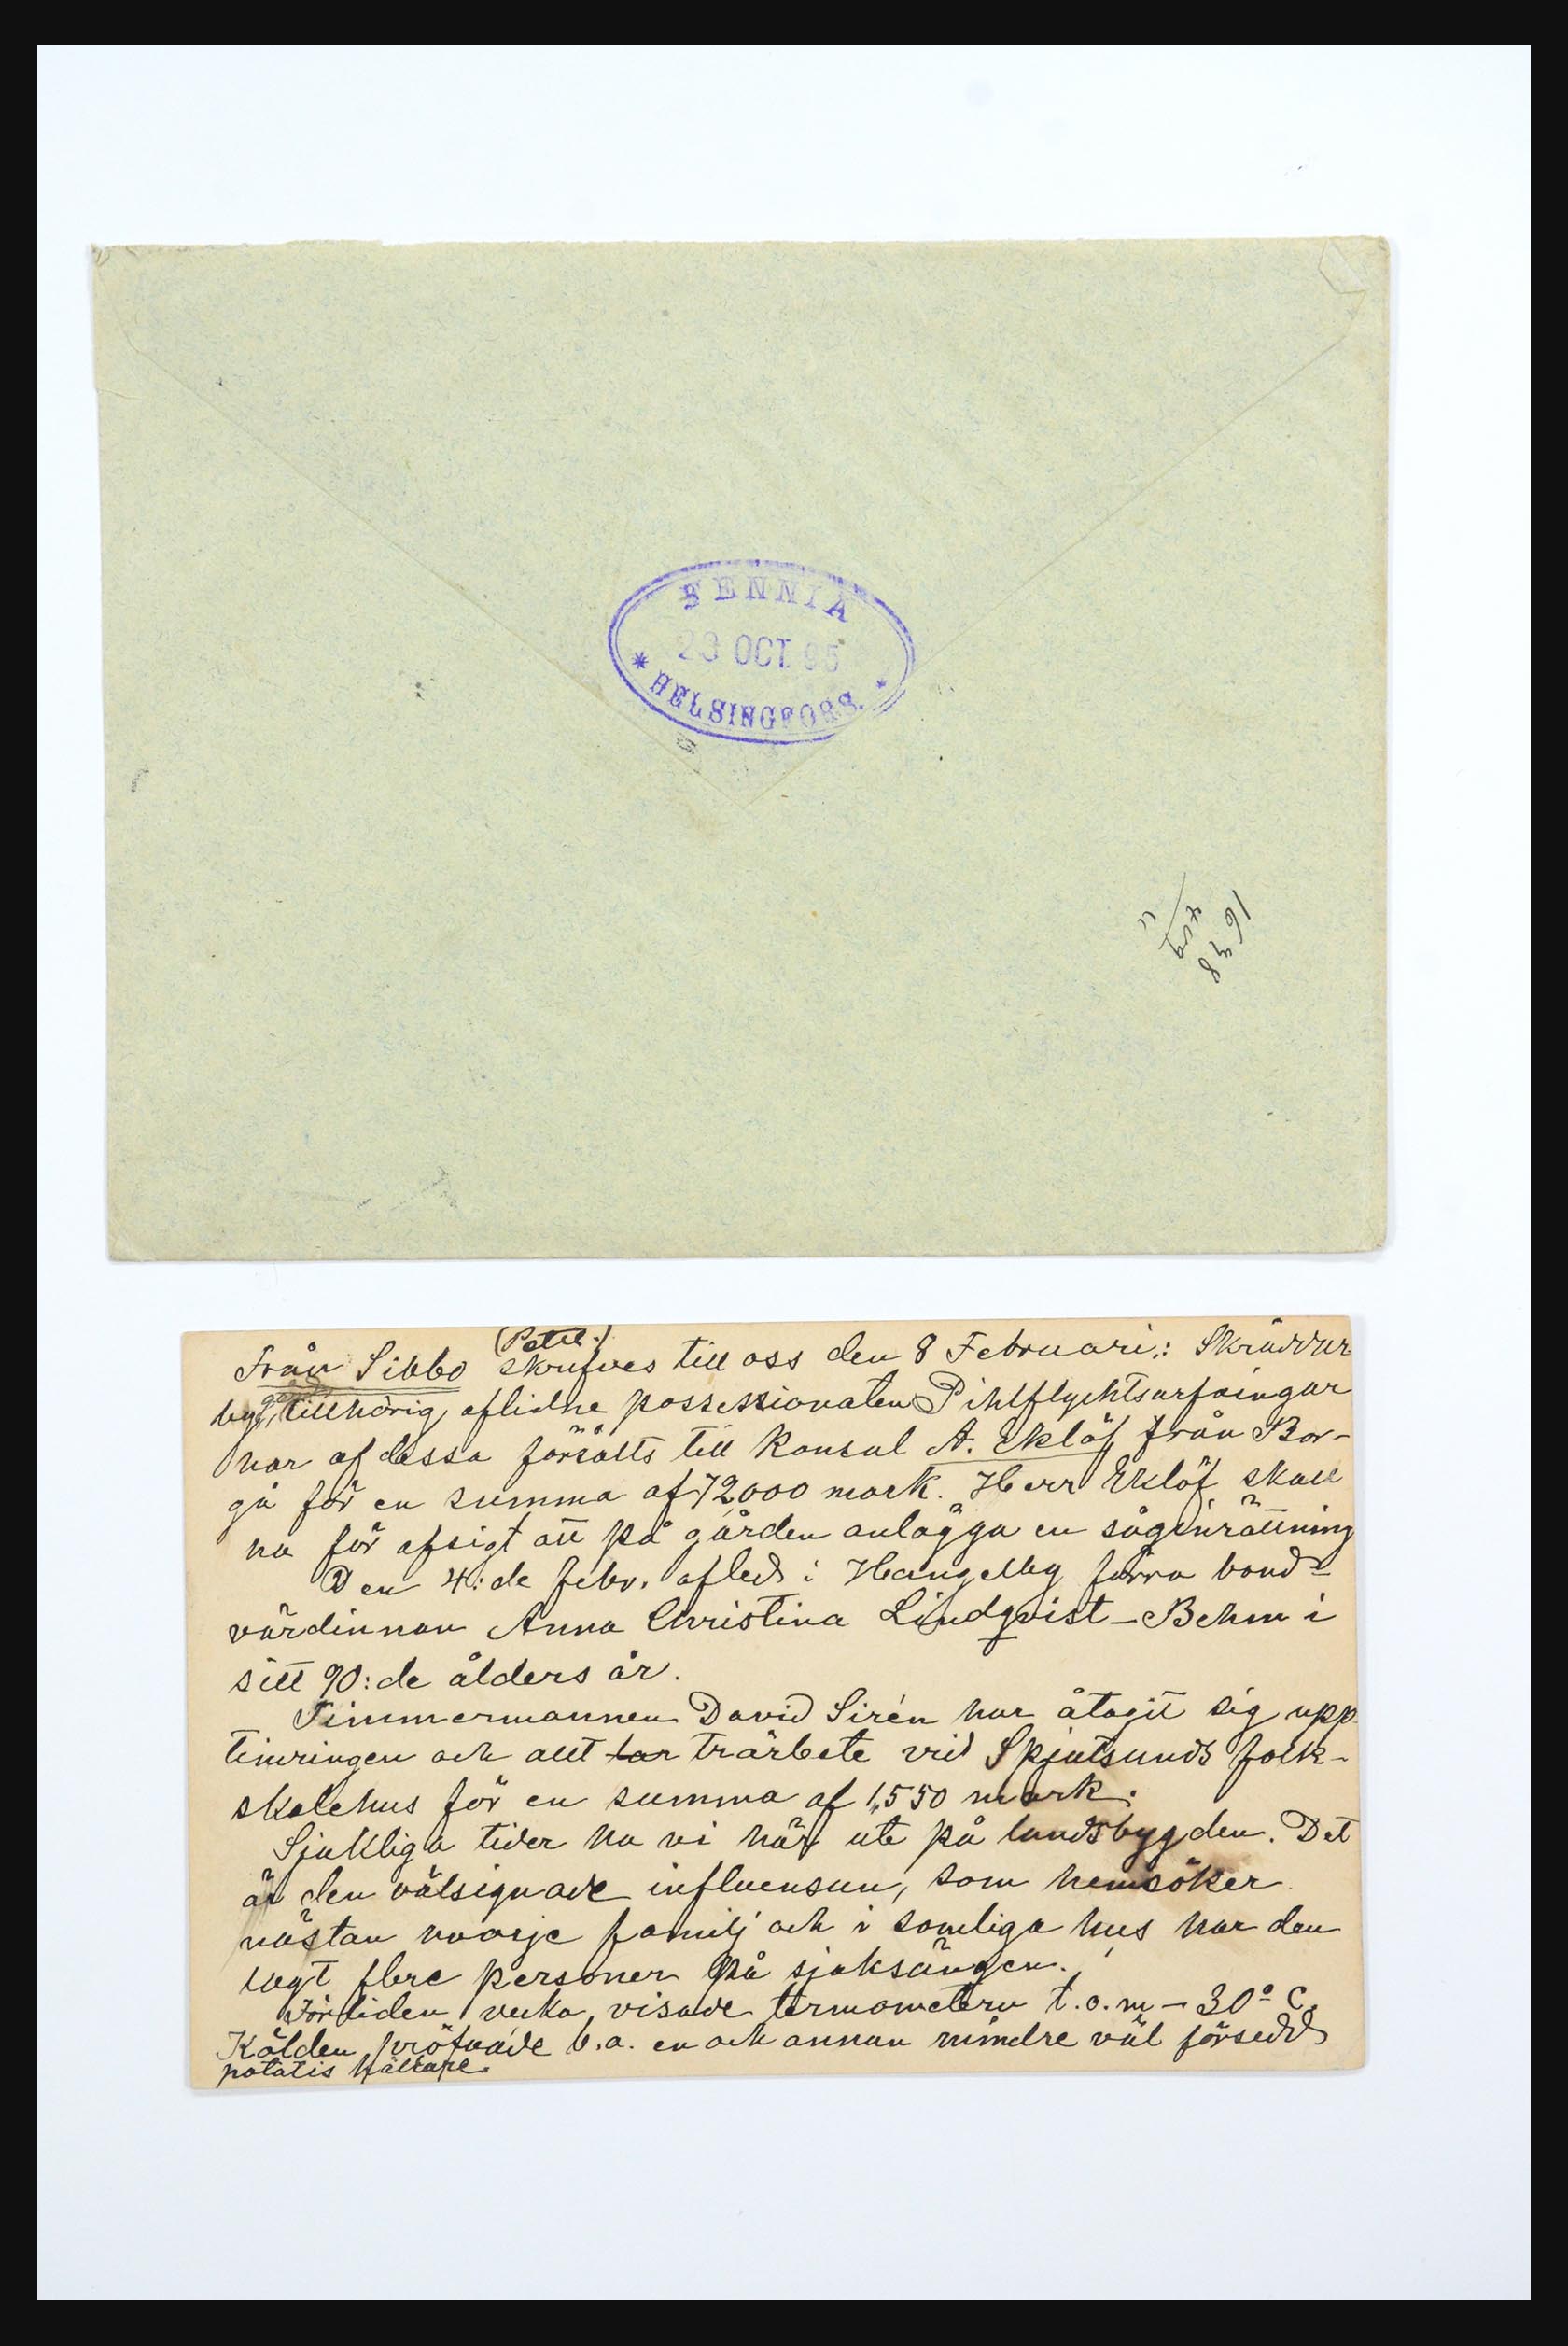 FENNIA
23 OCT. 95
* HELSINGFORS. *
1638
(Petit.)
Från Sibbo skrifves till oss den 8 Februari: Skräddar
by gård, tillhörig aflidne possessionaten Pihlflychts arfvingar
har af dessa försålts till konsul A. Eklöf från Bor-
gå för en summa af 72,000 mark. Herr Eklöf skall
ha för afsigt att på gården anlägga en såginrättning
Den 4:de febr. afled i Hangelby förra bond-
värdinnan Anna Christina Lindqvist-Behm i
sitt 90:de ålders år.
Timmermannen David Sirén har åtagit sig upp
timringen och allt träarbete vid Spjutsunds folk-
skolehus för en summa af 1,550 mark.
Sjukliga tider ha vi här ute på landsbygden. Det
är den välsignade influensan, som hemsöker
nästan hvarje familj och i somliga hus har den
lagt flere personer på sjuksängen.
Förliden vecka visade termometern t.o.m - 30° C.
Kölden pröfvade b.a. en och annan mindre väl försedd
potatis källare